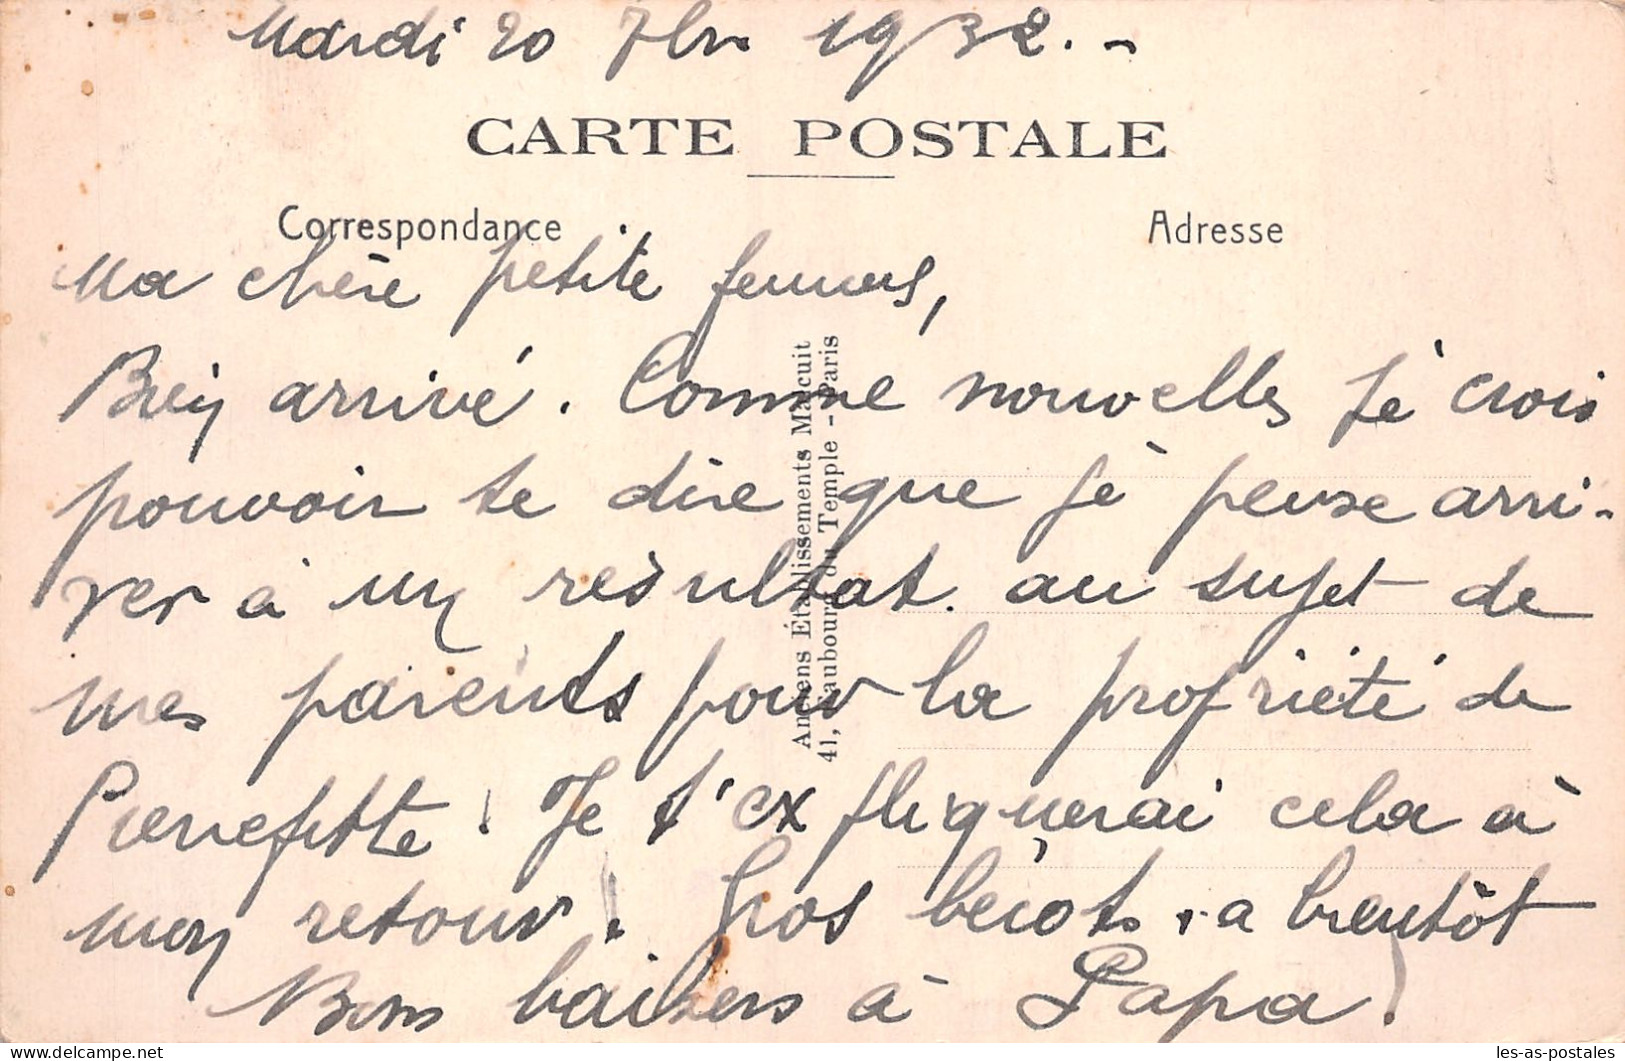 Mardi 20 7bre 1932. -
CARTE POSTALE
Correspondance
Adresse
Ma chère petite femme,
Bien arrivé. Comme nouvelles je crois
pouvoir te dire que je pense arri-
ver à un résultat. au sujet de
mes parents pour la propriété de
Pierrefitte. Je t'expliquerai cela à
mon retour. Gros bécots. a bientôt
Bons baisers à Papa.
Anciens Établissements Malcuit
41, Faubourg du Temple - Paris
les-as-postales